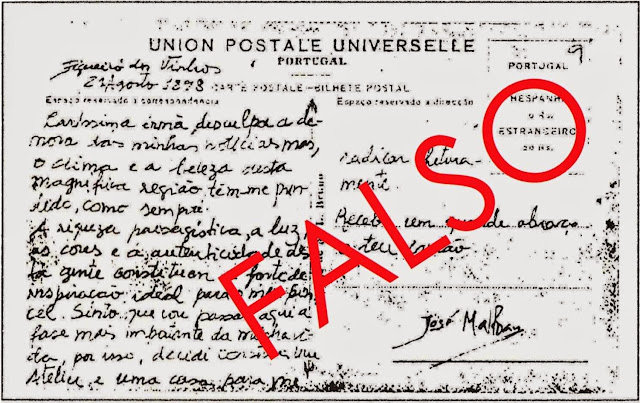 UNION POSTALE UNIVERSELLE
PORTUGAL
Figueiró dos Vinhos
21 Agosto 1898
CARTE POSTALE - BILHETE POSTAL
Espaço reservado à correspondencia
Caríssima irmã, desculpa a de-
mora das minhas notícias mas,
o clima e a beleza desta
magnífica região têm-me pren-
dido, como sempre.
A riqueza paisagistica, a luz,
as cores e a autenticidade des-
ta gente constituem fonte de
inspiração ideal para o meu pin-
cel. Sinto que vou passar aqui a
face mais da minha vi-
da, por isso, decidi construir um
Atelier e uma casa para me
PORTUGAL
HESPANHA
ESTRANGEIRO
20 RS.
Espaço reservado á direcção
radicar
mente.
Recebe um grande abraço
teu
José Malhoa
FALSO